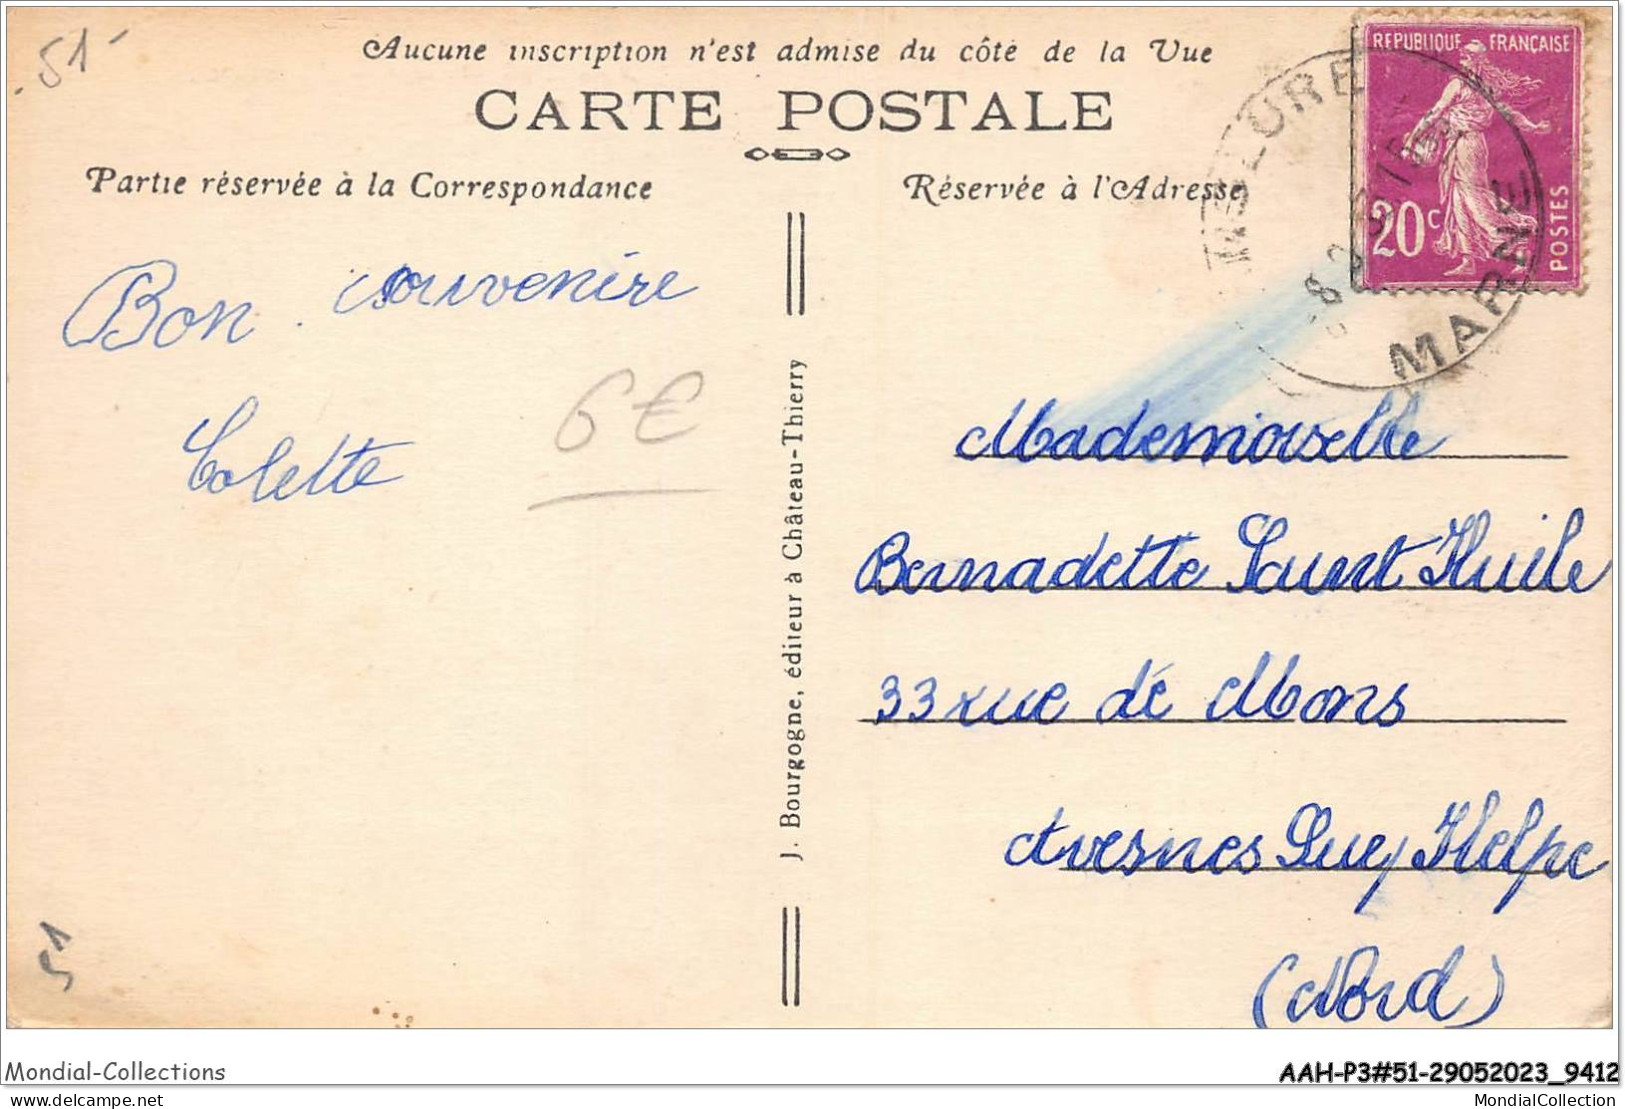 51
Aucune inscription n'est admise du côté de la Vue
CARTE POSTALE
REPUBLIQUE FRANÇAISE
20c
POSTES
MARNE
Partie réservée à la Correspondance
Réservée à l'Adresse
Bon souvenire
Colette
6€
J. Bourgogne, éditeur à Château-Thierry
Mademoiselle
Bernadette Saint Huile
33 rue de Mons
Avesnes Sur Helpe
(Nord)
51
Mondial-Collections
AAH-P3#51-29052023_9412
delcampe.net
MondialCollection